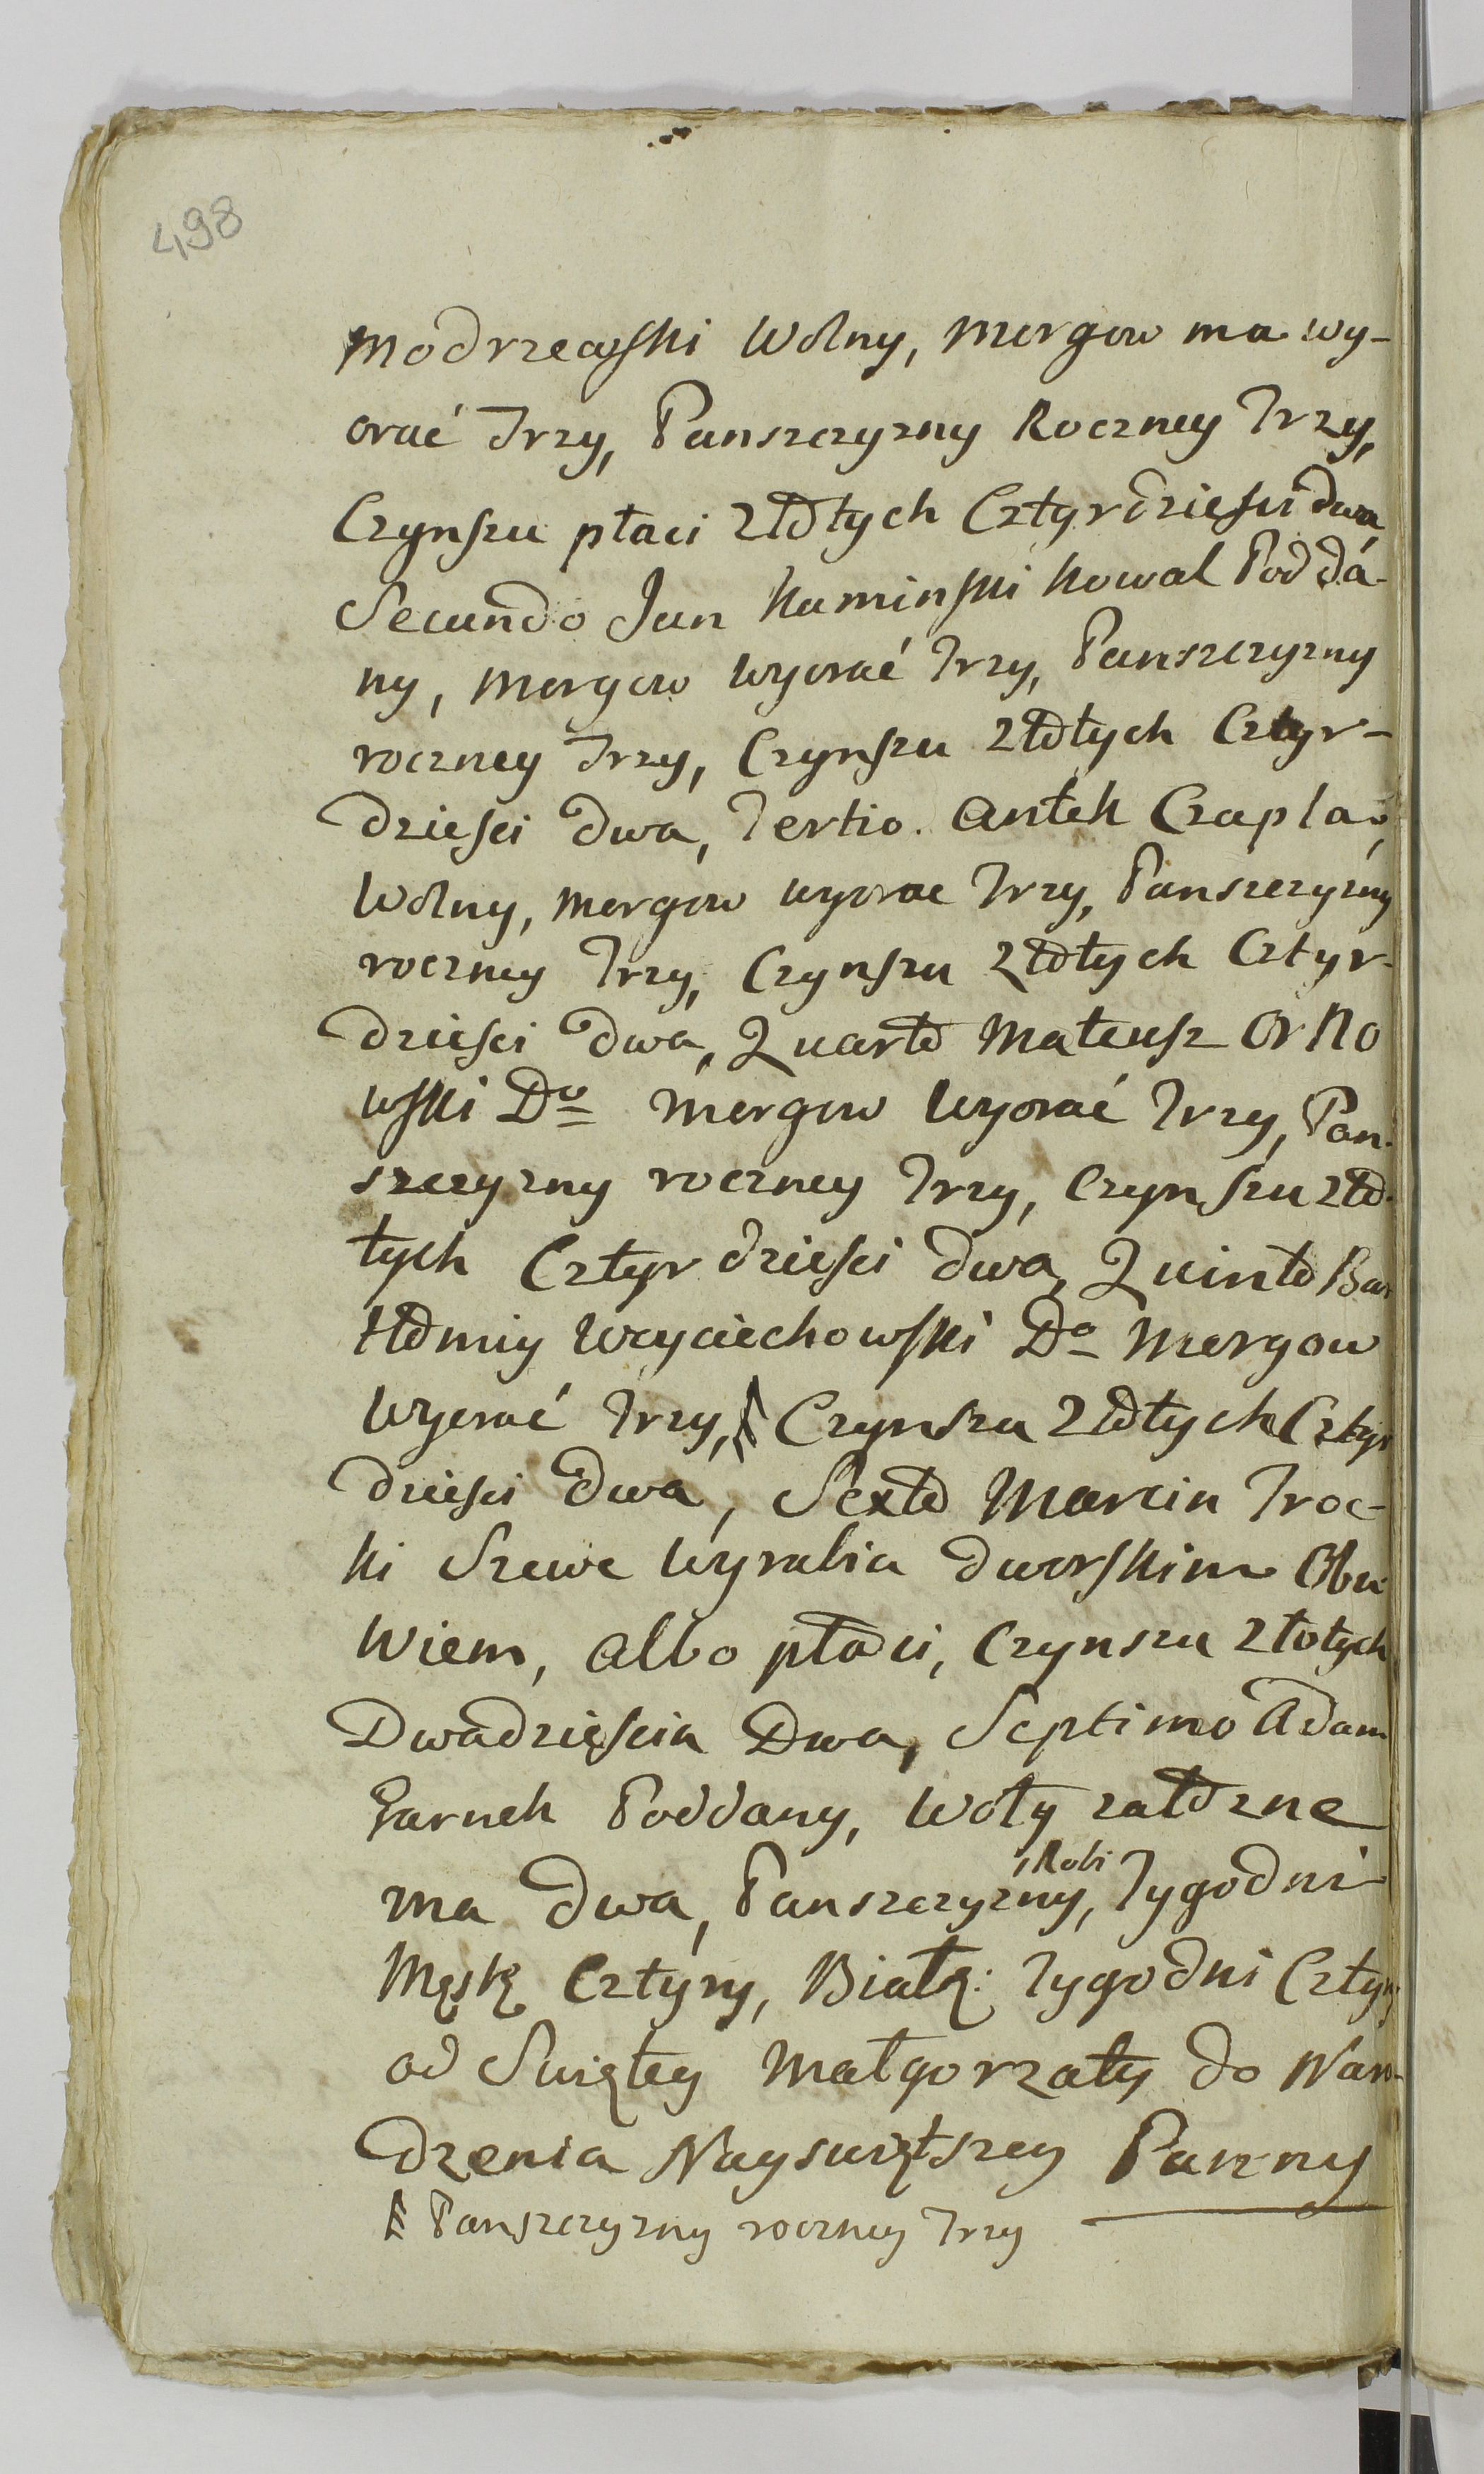 498
Modrzewski Wolny, Morgow ma wy-
orać Trzy, Panszczyzny Roczney Trzy,
Czynszu płaci Złotych Cztyrdzieści dwa,
Secundo Jan Kaminski Kowal Poddá-
ny, Morgow wyorać Trzy, Panszczyzny
roczney Trzy, Czynszu Złotych Cztyr-
dzieści dwa, Tertio. Antek Czapla,
Wolny, Morgow wyorac Trzy, Panszczyzny
roczney Trzy, Czynszu Złotych Cztyr-
dzieści dwa, Quarto Mateusz Orło
wski Do Morgow Wyorać Trzy, Pan-
szczyzny roczney Trzy, Czynszu Zło-
tych Cztyrdzieści dwa, Quinto Bar
tłomiy Woyciechowski Do Morgow
Wyorać Trzy, Czynszu Złotych Cztyr
dzieści dwa, Sexto Marcin Troc-
ki Szewc Wyrabia dworskim Obu
wiem, albo płaci, Czynszu Złotych
Dwadzieścia Dwa, Septimo Adam
Garnek Poddany, Woły załozne
ma dwa, Panszczyzny, Robi Tygodni
Męską Cztyry, Białą: Tygodni Cztyry
od Swiętey Małgorzaty do Naro-
dzenia Nayswiętszey Panny
Panszczyzny roczney Trzy